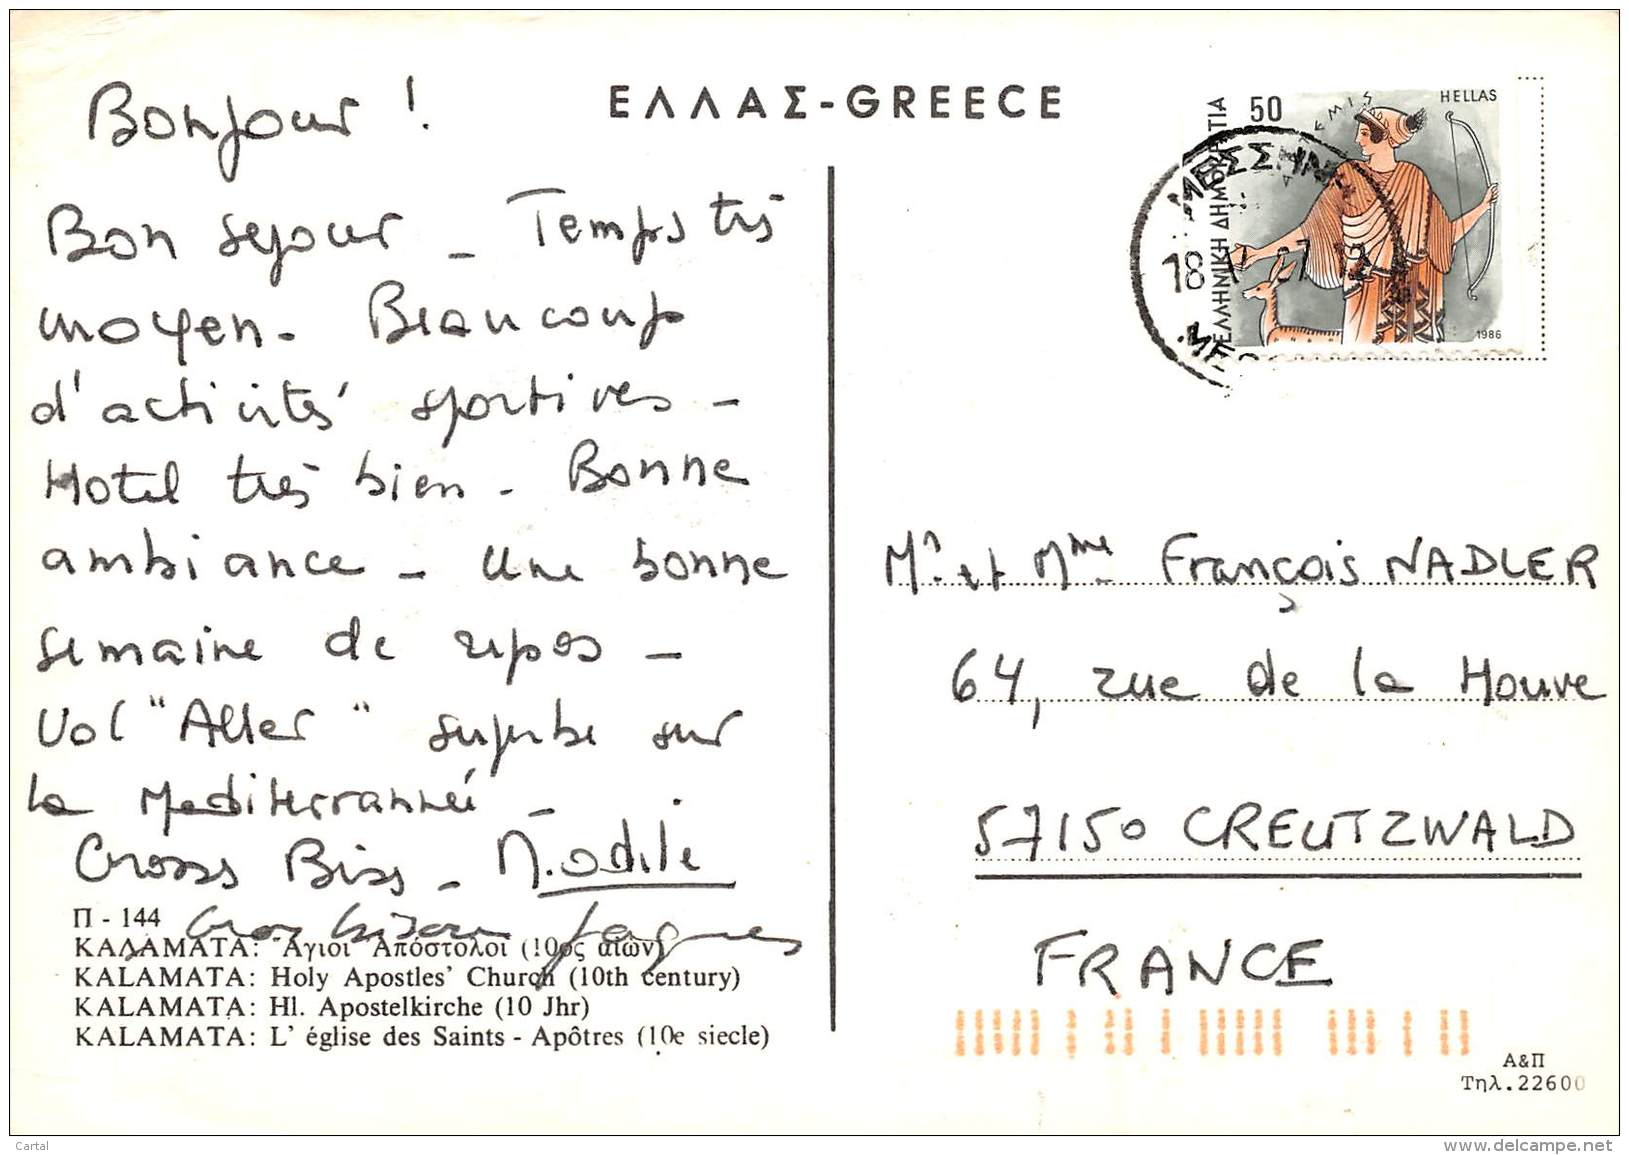 Bonjour !
Bon sejour - Temps très
moyen - Beaucoup
d'activités sportives -
Hotel très bien - Bonne
ambiance - Une bonne
semaine de repos -
Vol "Aller" superbe sur
la Mediterrannée -
Grosses Bises - M. odile
Gros bisous Jacques
Π - 144
ΚΑΛΑΜΑΤΑ: Ἅγιοι Ἀπόστολοι (10ος αἰών)
KALAMATA: Holy Apostles' Church (10th century)
KALAMATA: Hl. Apostelkirche (10 Jhr)
KALAMATA: L' église des Saints - Apôtres (10e siecle)
ΕΛΛΑΣ-GREECE
50
HELLAS
ΕΛΛΗΝΙΚΗ ΔΗΜΟΚΡΑΤΙΑ
ΕΜΙΣ
1986
ΜΕΣΣΗΝ
18
87
Mr et Mme François NADLER
64, rue de la Houve
57150 CREUTZWALD
FRANCE
Α&Π
Τηλ.22600
Cartal
www.delcampe.net